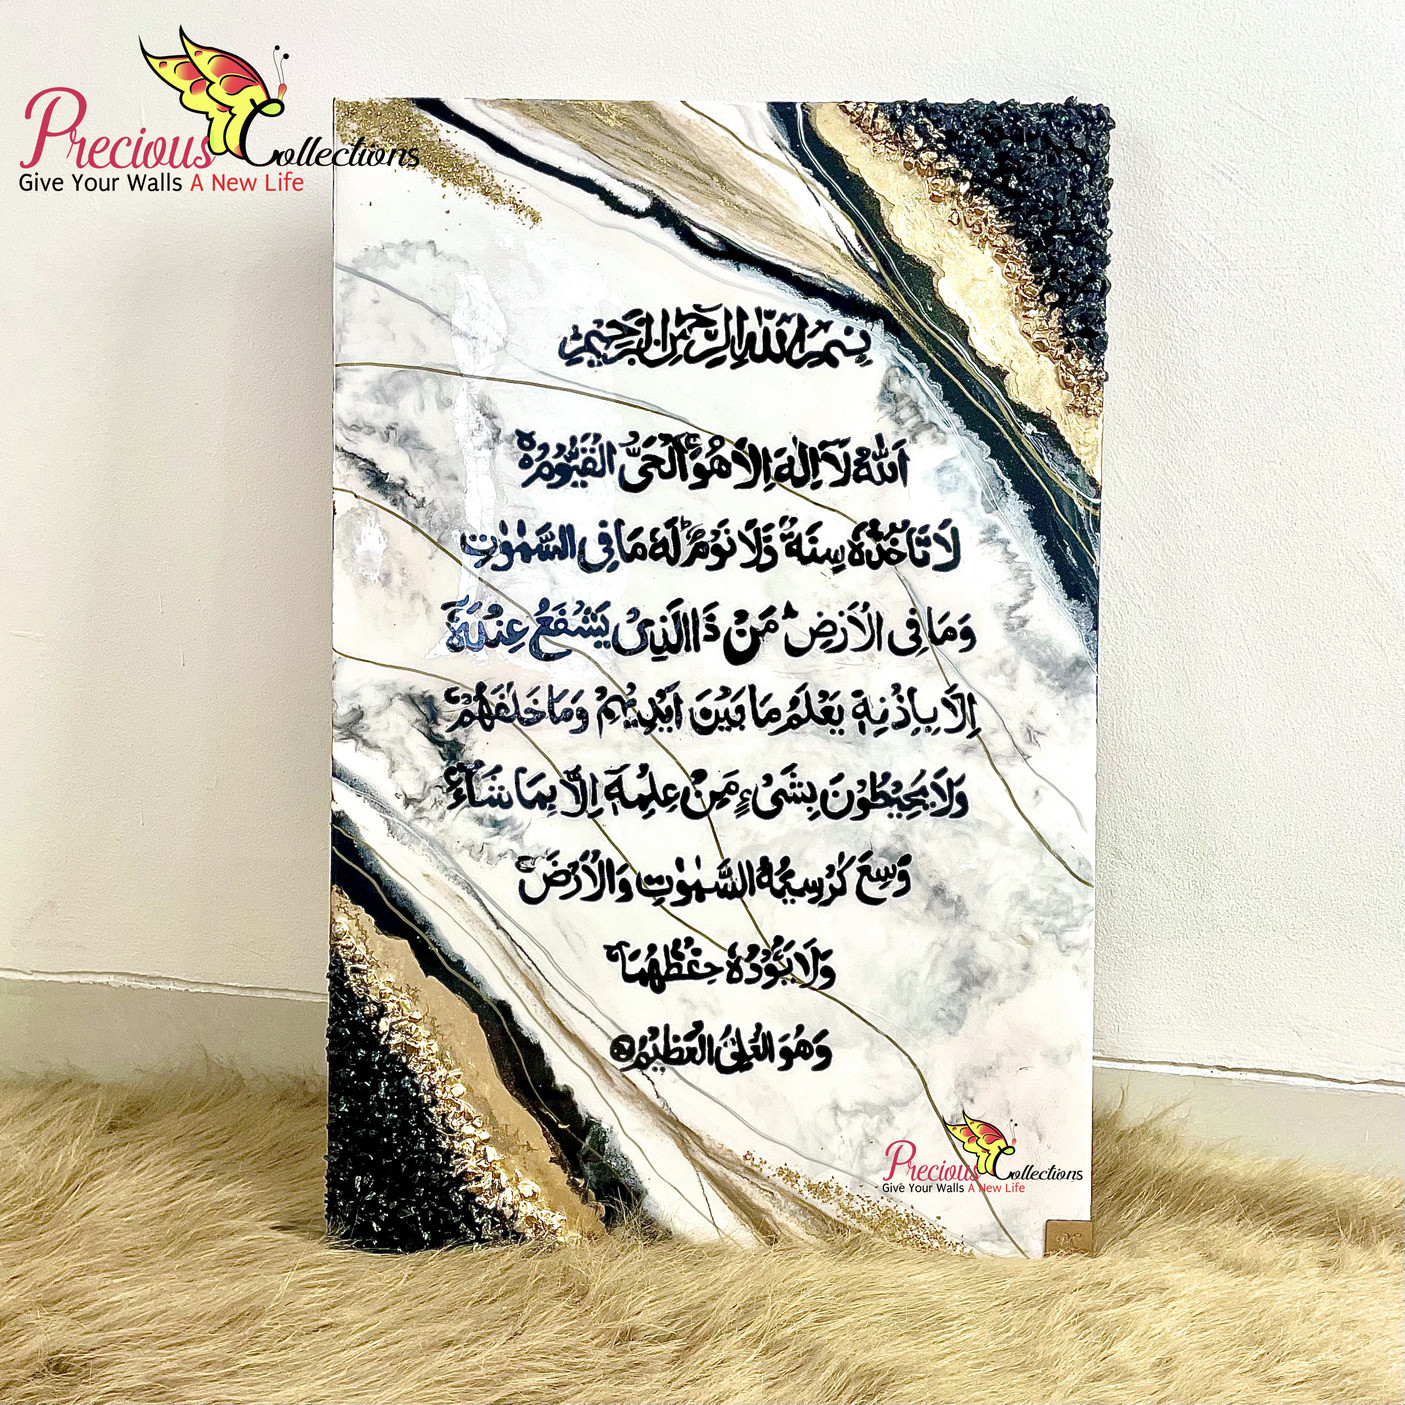 Precious Collections
Give Your Walls A New Life
بِسْمِ اللّٰهِ الرَّحْمٰنِ الرَّحِيْمِ
اَللّٰهُ لَآ اِلٰهَ اِلَّا هُوَ ۚ اَلْحَیُّ الْقَيُّوْمُ ۚ
لَا تَاْخُذُهٗ سِنَةٌ وَّلَا نَوْمٌ ؕ لَهٗ مَا فِی السَّمٰوٰتِ
وَمَا فِی الْاَرْضِ ؕ مَنْ ذَا الَّذِیْ يَشْفَعُ عِنْدَهٗۤ
اِلَّا بِاِذْنِهٖ يَعْلَمُ مَا بَيْنَ اَيْدِيْهِمْ وَمَا خَلْفَهُمْ ۚ
وَلَا يُحِيْطُوْنَ بِشَیْءٍ مِّنْ عِلْمِهٖۤ اِلَّا بِمَا شَآءَ ۚ
وَسِعَ كُرْسِيُّهُ السَّمٰوٰتِ وَالْاَرْضَ ۚ
وَلَا يَئُوْدُهٗ حِفْظُهُمَا ۚ
وَهُوَ الْعَلِیُّ الْعَظِيْمُ
Precious Collections
Give Your Walls A New Life
PC